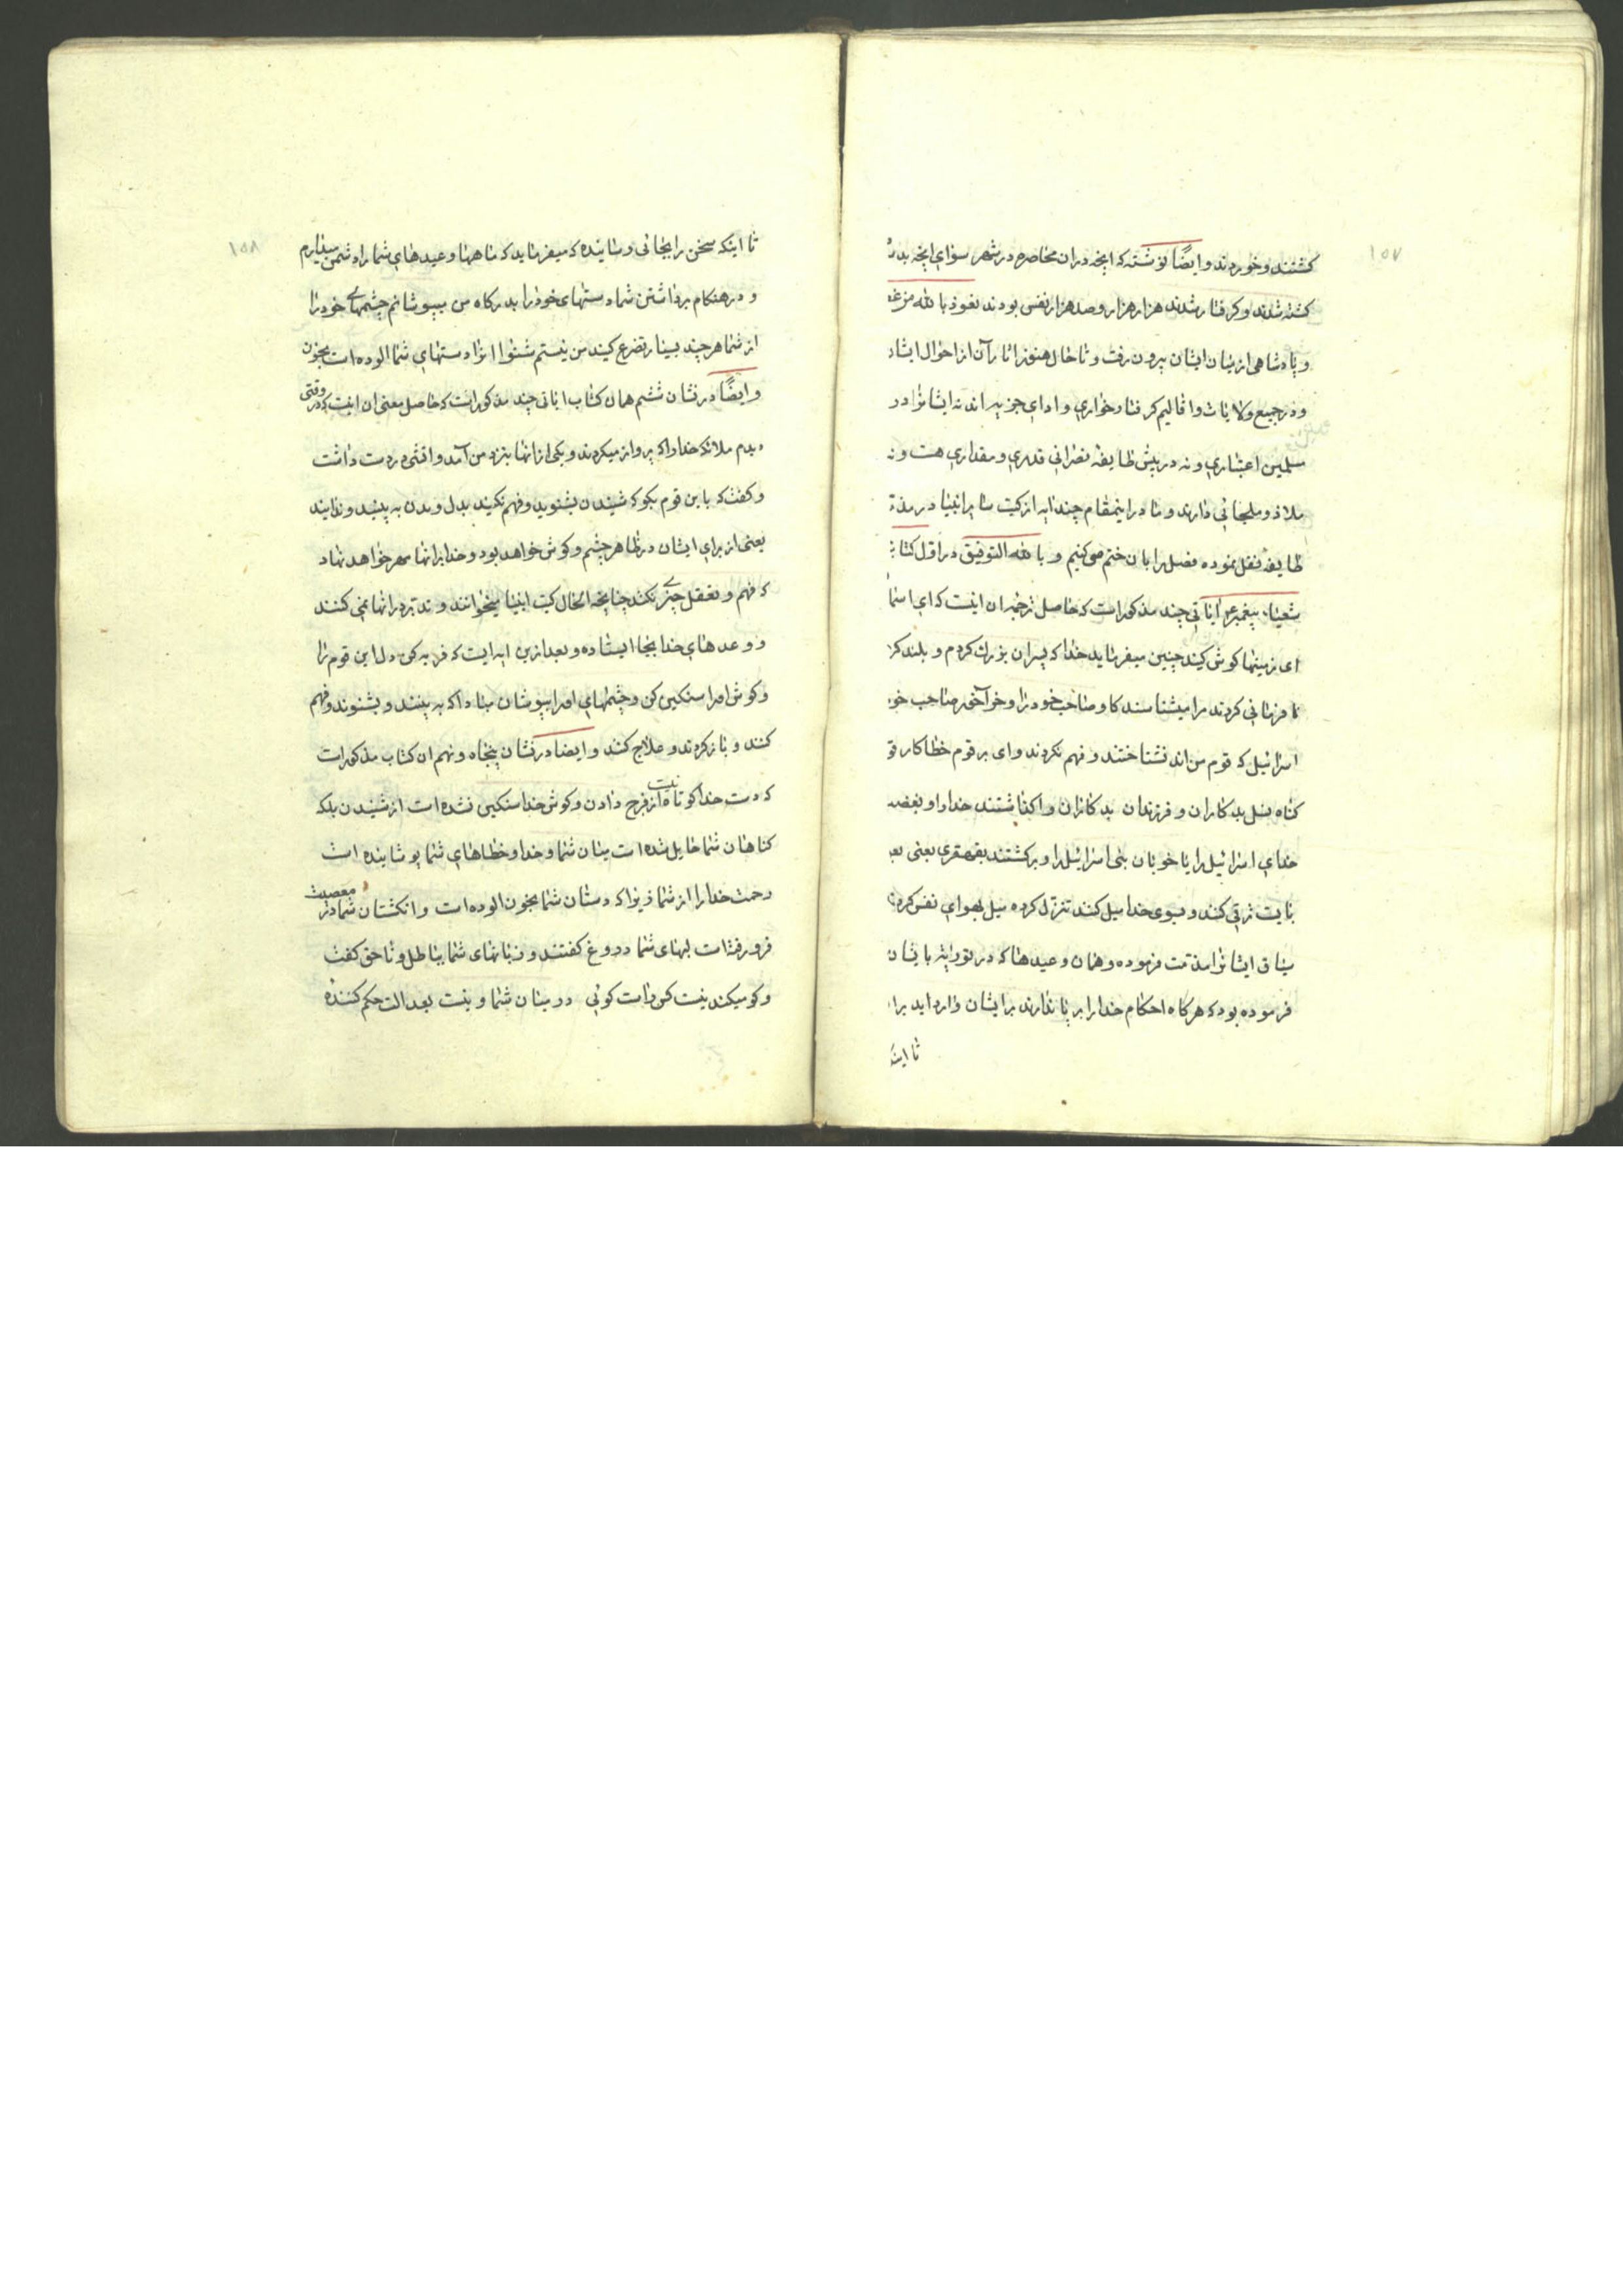 ۱۵۷
کشتند و خوردند و ایضاً نوشته که انچه در ان محاصره در شهر سوای انچه بدر
کشته شدند و کرفتار شدند هزار هزار و صد هزار نفس بودند نعوذ بالله من غضب
و پادشاهی از میان ایشان بیرون رفت و تا حال هنوز اثار آن از احوال ایشان
و در جمیع ولایات و اقالیم کرفتار خواری و ادای جزیه اند نه ایشانرا در
مسلمین اعتباری و نه در پیش طایفه نصرانی قدری و مقداری هست و نه
ملاذ و ملجائی دارند و ما در اینمقام چند ایه از کتب سایر انبیا در مذمت
طایفه نقل نموده فصل را بان ختم می کنیم و بالله التوفیق در اوّل کتاب
شعیاء پیغمبر ع ایاتی چند مذکور است که حاصل ترجمه ان اینست که ای اسما
ای زمینها کوش کیند چنین میفرماید خدا که پسران بزرك کردم و بلند کر
نافرمانی کردند مرا میشناسد کاو صاحب خود را و خر آخور صاحب خود
اسرائیل که قوم من اند نشناختند و فهم نکردند وای بر قوم خطاکار قو
کناه نسل بدکاران و فرزندان بدکاران واکذاشتند خدا را و بغضب
خدای اسرائیل را یا خوبان بنی اسرائیل را و برکشتند بقهقری یعنی بع
بایست ترقی کند و بسوی خدا میل کنند تنزل کرده میل بهوای نفس کرد
میثاق ایشانرا مذمت فرموده و همان وعیدها که در توریة بایشان
فرموده بود که هرکاه احکام خدا را بر پا ندارند بر ایشان وارد اید برا
تا اینکه
۱۵۸
تا اینکه سخن را بجائی رسانیده که میفرماید که ماهها و عیدهای شما را دشمن میدارم
و در هنکام برداشتن شما دستهای خود را بدرکاه من بپوشانم چشمهای خود را
از شما هر چند بسیار تضرع کیند من نیستم شنوا زیرا دستهای شما الوده است بخون
و ایضاً در نشان ششم همان کتاب ایاتی چند مذکور است که حاصل معنی ان اینست که در وقتی
دیدم ملائکه خدا را که پرواز میکردند و یکی از انها بنزد من آمد و اتشی در دست داشت
و کفت که باین قوم بکو که شنیدن بشنوید و فهم نکیند بدل و بدن به بینید و ندانید
یعنی از برای ایشان در ظاهر چشم و کوش خواهد بود و خدا بر انها مهر خواهد نهاد
که فهم و تعقل چیزی نکند چنانچه الحال کتب انبیا میخوانند و تدبّر در انها نمی کنند
و وعدهای خدا بجا ایستاده و بعد ازین ایه ایست که فربه کن دل این قوم را
و کوش او را سنکین کن و چشمهای او را بپوشان مبادا که به بینند و بشنوند و فهم
کنند و باز کردند و علاج کند و ایضا در نشان پنجاه و نهم ان کتاب مذکور است
که دست خدا کوتاه نیست از فرج دادن و کوش خدا سنکین نشده است از شنیدن بلکه
کناهان شما حایل شده است میان شما و خدا و خطاهای شما پوشانیده است
رحمت خدا را از شما زیرا که دستان شما بخون الوده است و انکشتان شما در معصیت
فرو رفته است لبهای شما دروغ کفتند و زبانهای شما بباطل و ناحق کفت
و کو میکند نیست کس راست کوئی در میان شما و نیست بعدالت حکم کننده